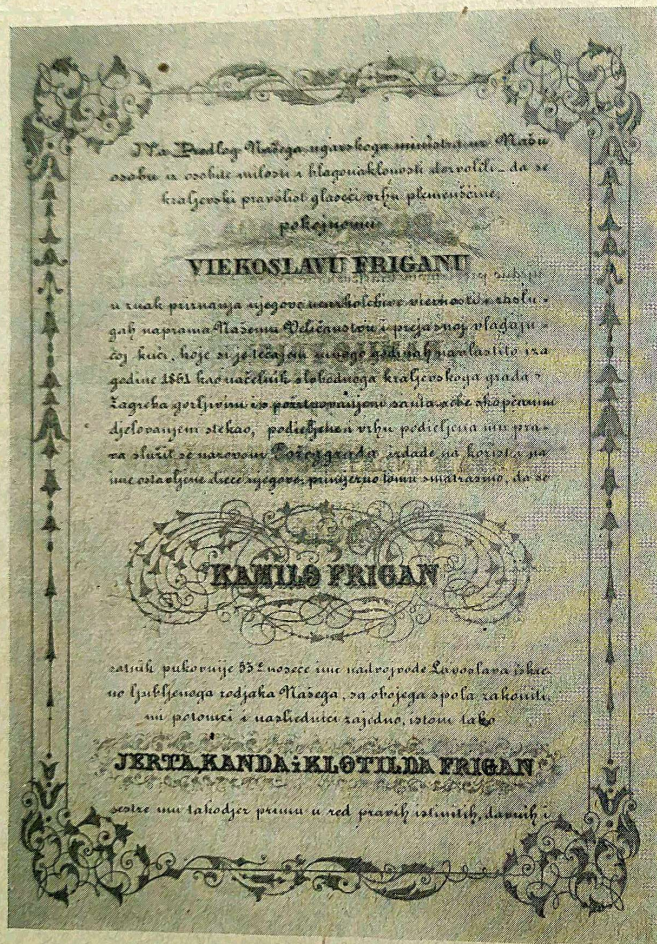 Na Predlog Našega ugarskoga ministra uz Našu
osobu iz osobite milosti i blagonaklonosti dozvolili, da se
kraljevski pravolist glaseći vrhu plemenšćine,
pokojnomu
VIEKOSLAVU FRIGANU
u znak priznanja njegove neuzkolebive viernosti i zaslu-
gah naprama Našemu Veličanstvu i prejasnoj vladaju-
ćoj kući, koje si je tečajem mnogo godinah navlastito iza
godine 1861 kao načelnik slobodnoga kraljevskoga grada
Zagreba gorljivim i s požrtvovanjem sama sebe skopčanim
djelovanjem stekao, podieljene a vrhu podieljena mu pra-
va služit se nazovom Požeggrada, izdade na korist i na
ime ostavljene diece njegove, primjerno tomu smatrasmo, da se
KAMILO FRIGAN
satnik pukovnije 53e noseće ime nadvojvode Lavoslava iskre-
no ljubljenoga rodjaka Našega, sa obojega spola zakoniti-
mi potomci i nasljednici zajedno, istom tako
JERTA, KANDA i KLOTILDA FRIGAN
sestre mu takodjer primu u red pravih istinitih, davnih i